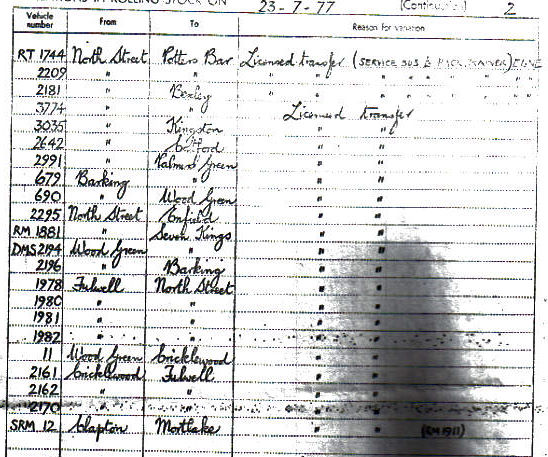 ROLLING STOCK ON 23-7-77 (Continuation) 2
Vehicle number From To Reason for variation
RT 1744 North Street Potters Bar Licensed transfer (SERVICE BUS &
2209 " " " "
2181 " Bexley " "
3774 " " Licensed transfer
3035 " Kingston " "
2642 " Catford " "
2991 " Palmers Green " "
679 Barking " " "
690 " Wood Green " "
2295 North Street Enfield " "
RM 1881 " Seven Kings " "
DMS 2194 Wood Green " " "
2196 " Barking " "
1978 Fulwell North Street " "
1980 " " " "
1981 " " " "
1982 " " " "
11 Wood Green Cricklewood " "
2161 Cricklewood Fulwell " "
2162 " " " "
2170 " " " "
SRM 12 Clapton Mortlake " " (RM 1911)